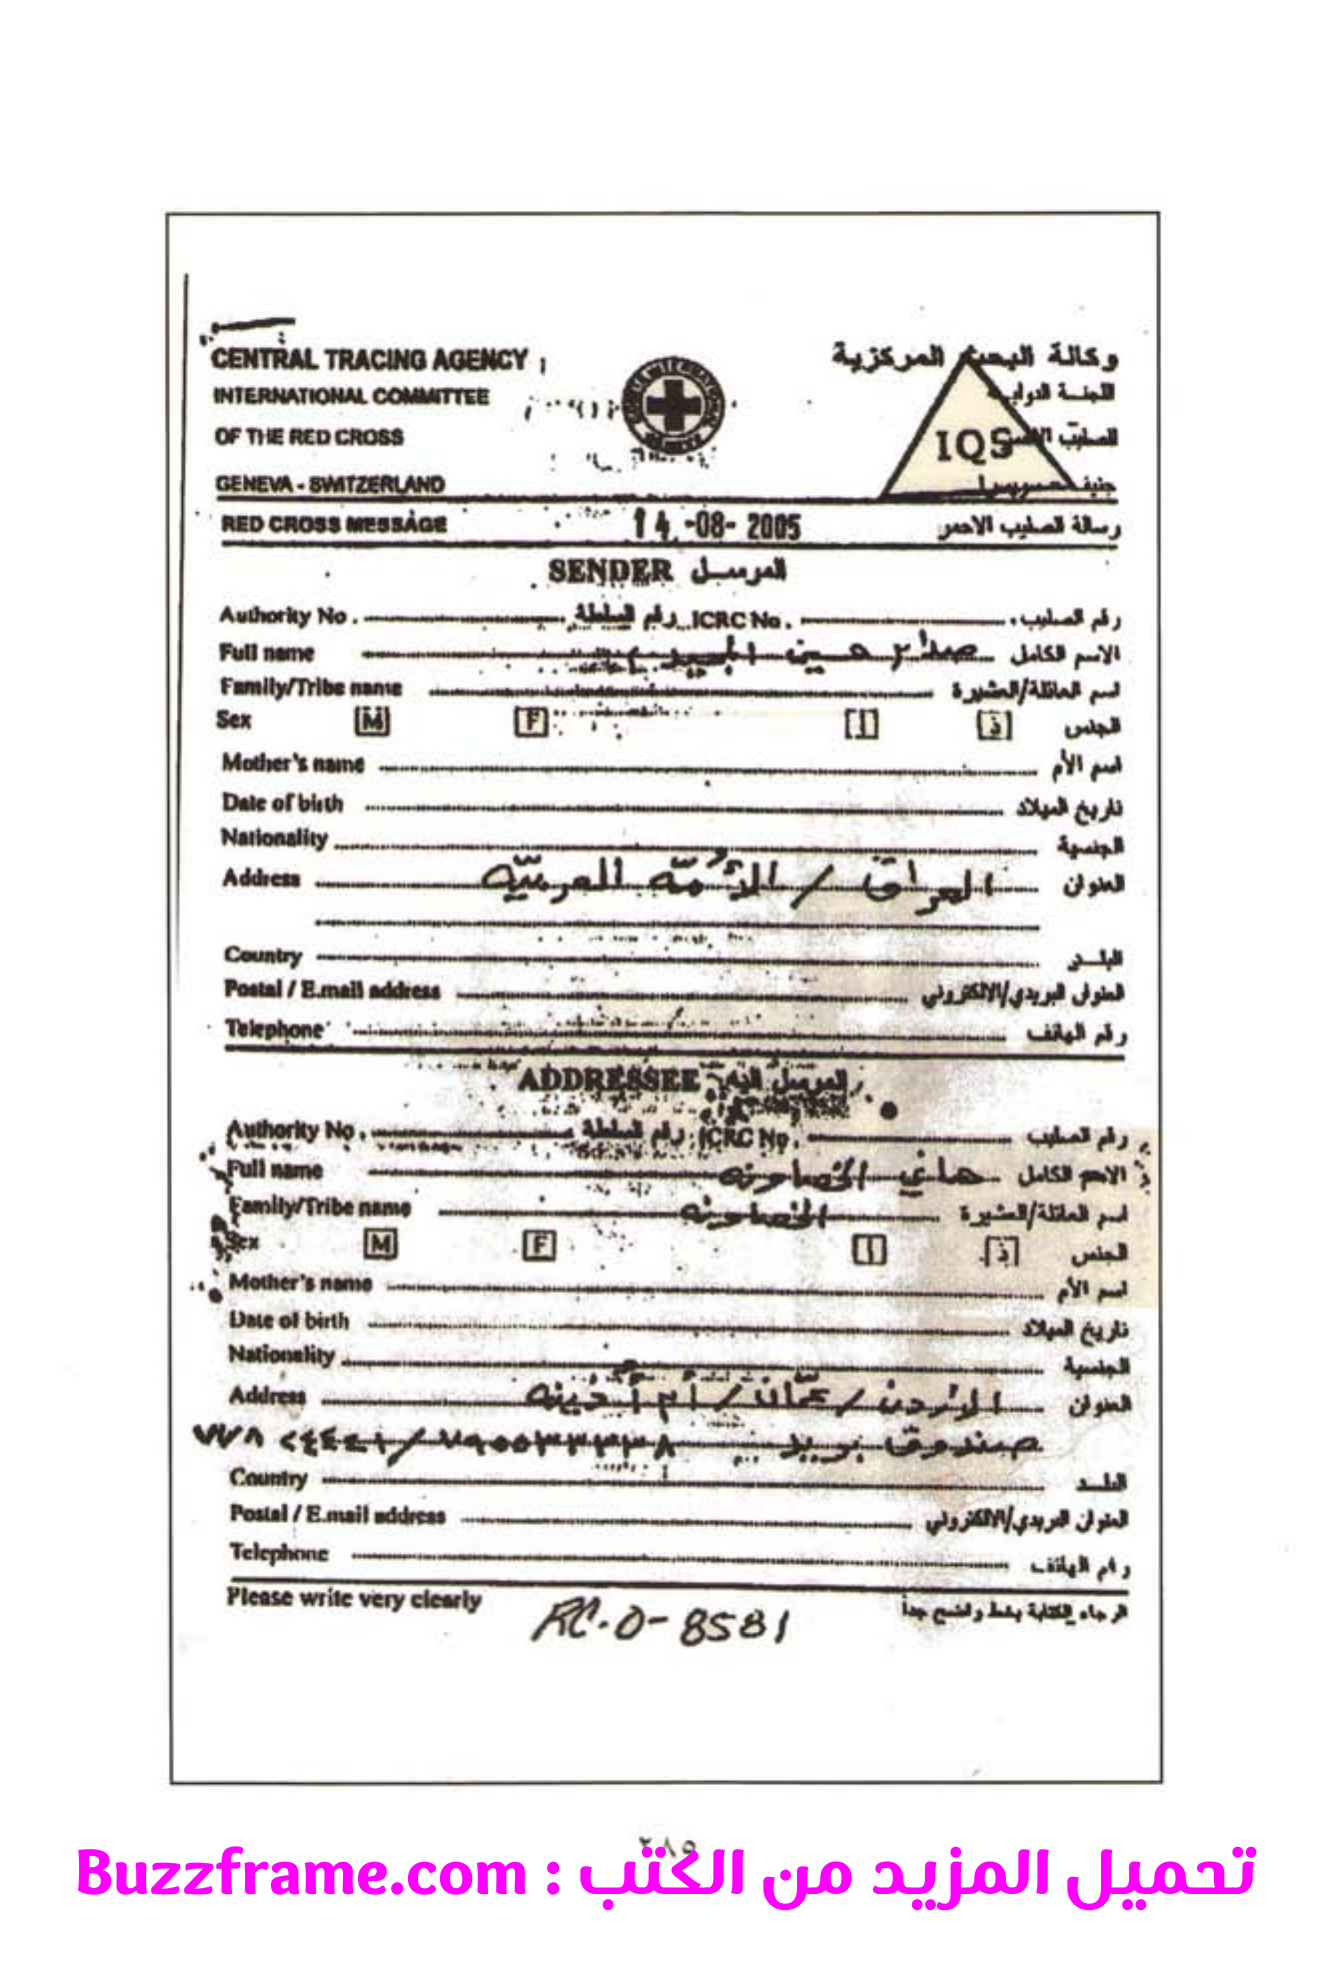 CENTRAL TRACING AGENCY وكالة البحث المركزية
INTERNATIONAL COMMITTEE اللجنة الدولية
OF THE RED CROSS للصليب
IQS
GENEVA - SWITZERLAND جنيف سويسرا
RED CROSS MESSAGE 14-08-2005 رسالة الصليب الاحمر
SENDER المرسل
Authority No. رقم السلطة ICRC No. رقم الصليب
Full name صدام حسين المجيد الاسم الكامل
Family/Tribe name اسم العائلة/العشيرة
Sex M F أ ذ الجنس
Mother's name اسم الأم
Date of birth تاريخ الميلاد
Nationality الجنسية
Address العراق / الأمّة العربيّه العنوان
Country البلد
Postal / E.mail address العنوان البريدي/الالكتروني
Telephone رقم الهاتف
ADDRESSEE المرسل اليه
Authority No. رقم السلطة ICRC No. رقم الصليب
Full name هاني الخصاونه الاسم الكامل
Family/Tribe name الخصاونه اسم العائلة/العشيرة
Sex M F أ ذ الجنس
Mother's name اسم الأم
Date of birth تاريخ الميلاد
Nationality الجنسية
Address الاردن / عمّان / أم أذينه العنوان
صندوق بريد
Country البلد
Postal / E.mail address العنوان البريدي/الالكتروني
Telephone رقم الهاتف
Please write very clearly الرجاء الكتابة بخط واضح جداً
RC-0-8581
٢٨٥
تحميل المزيد من الكتب : Buzzframe.com